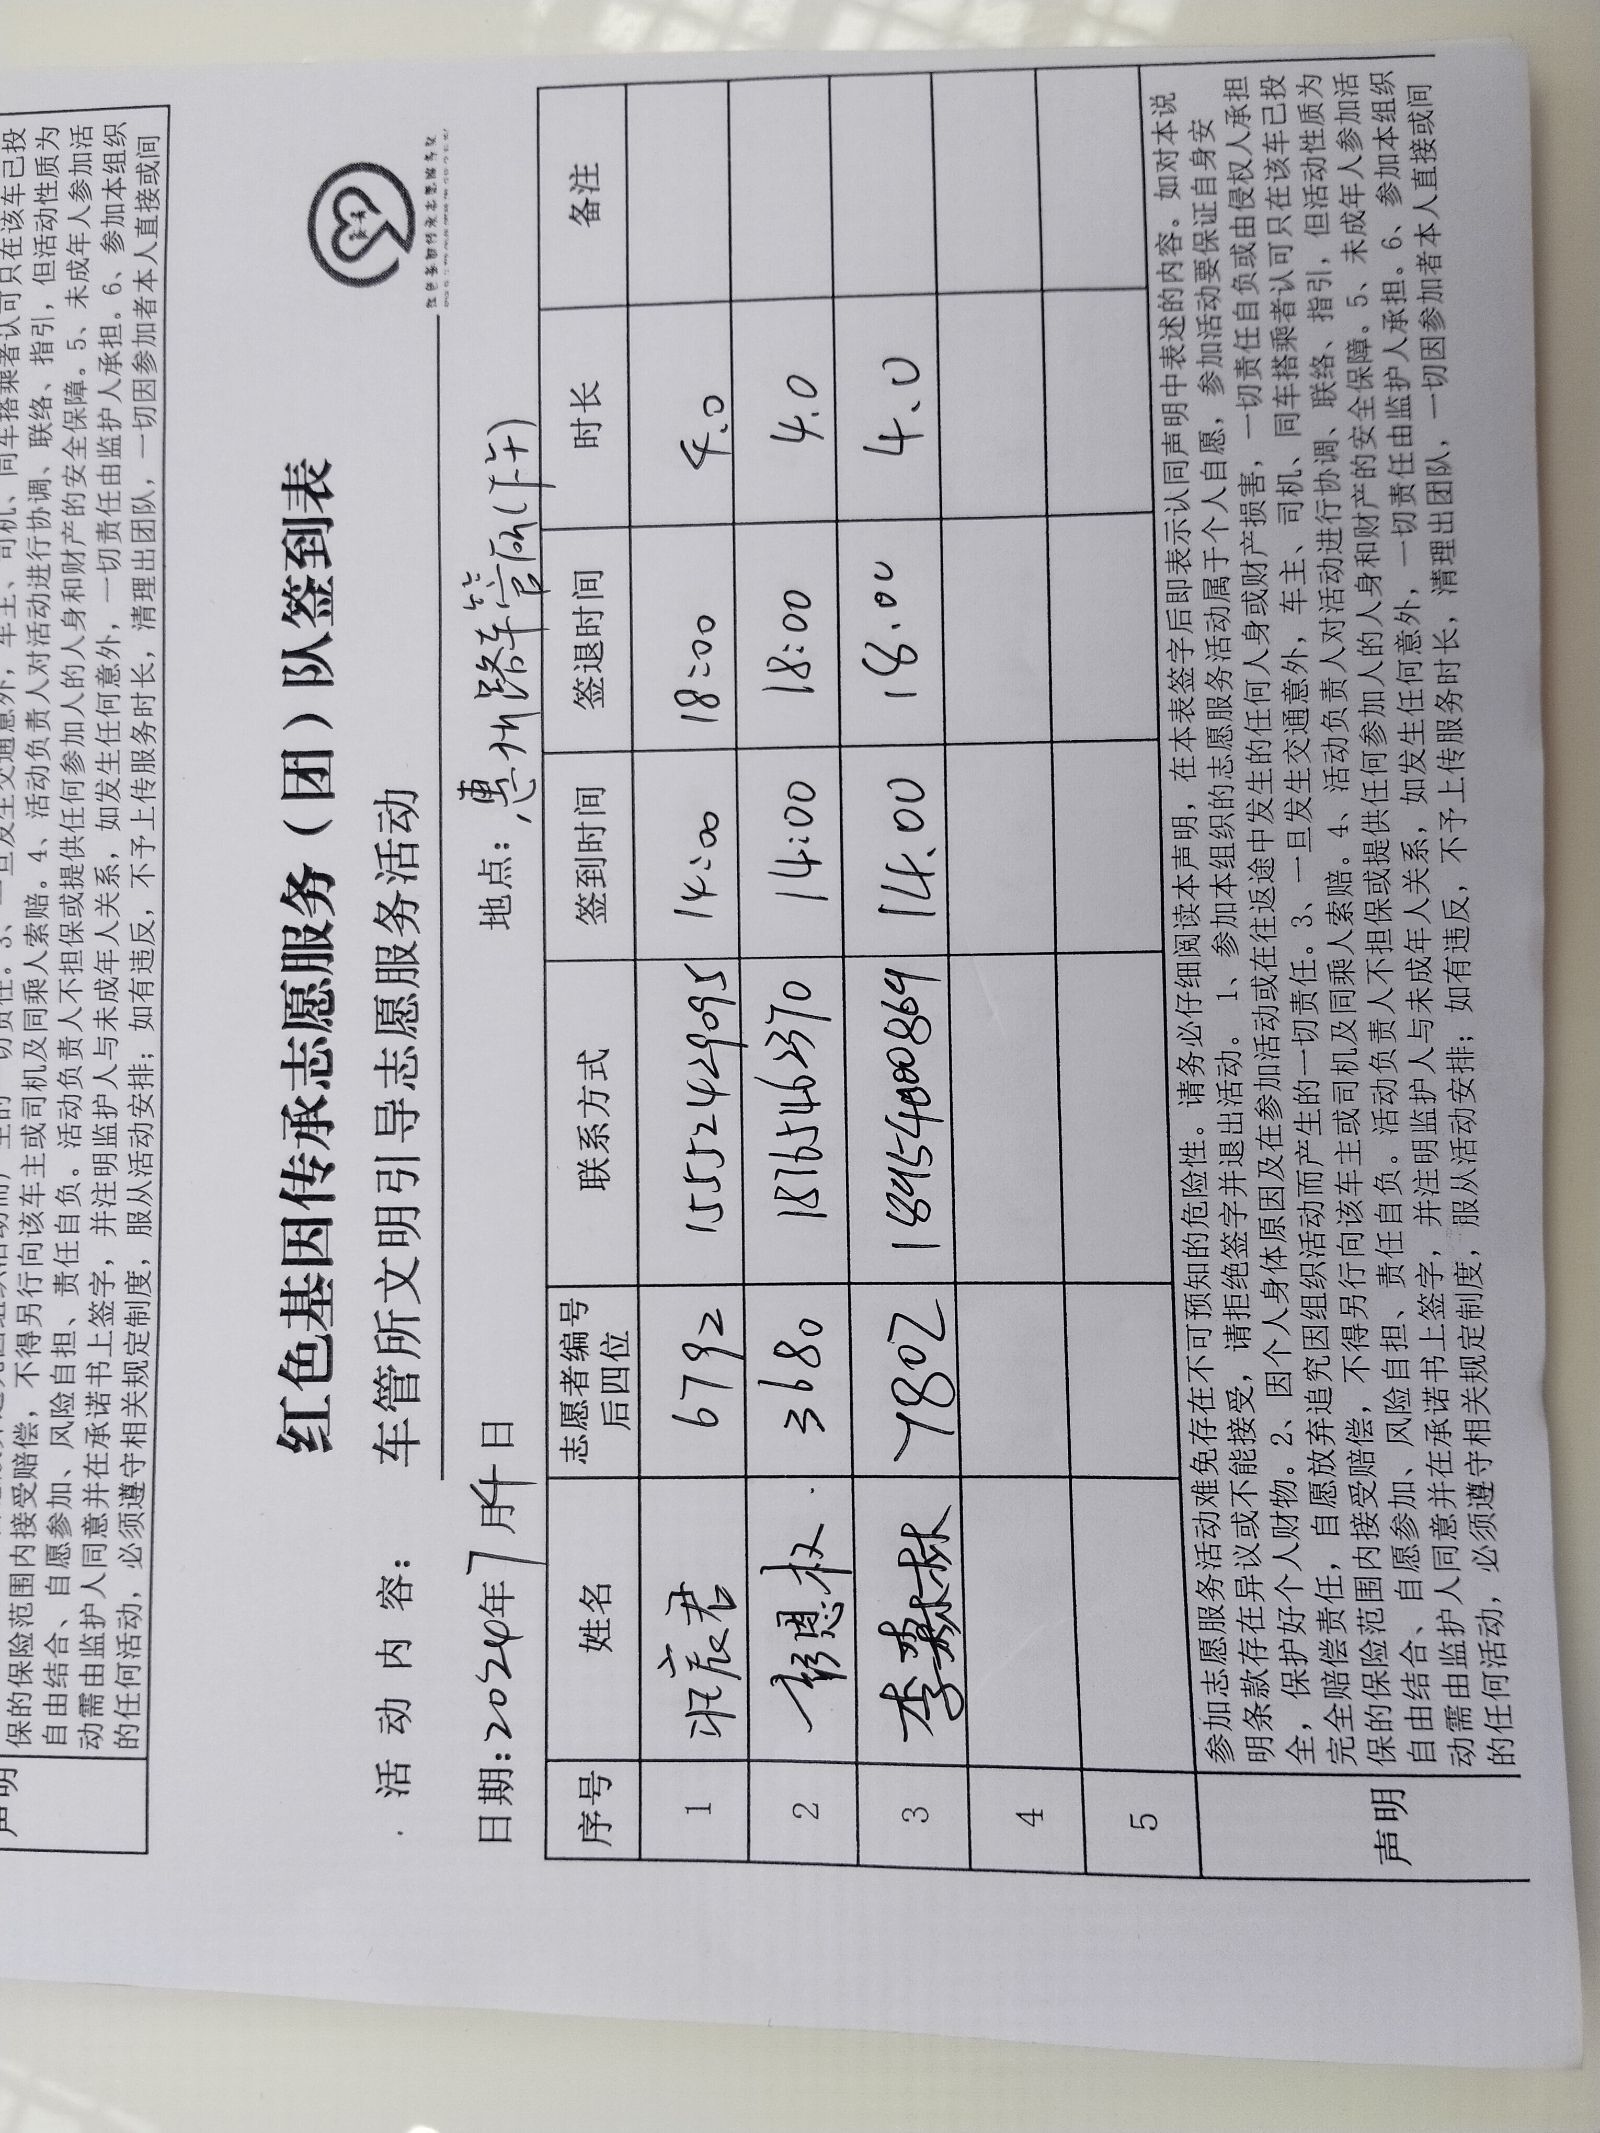 保的保险范围内接受赔偿，不得另行向该车主或司机及同乘人索赔。4、活动负责人对活动进行协调、联络、指引，但活动性质为
自由结合、自愿参加、风险自担、责任自负。活动负责人不担保或提供任何参加人的人身和财产的安全保障。5、未成年人参加活
动需由监护人同意并在承诺书上签字，并注明监护人与未成年人关系，如发生任何意外，一切责任由监护人承担。6、参加本组织
的任何活动，必须遵守相关规定制度，服从活动安排；如有违反，不予上传服务时长，清理出团队，一切因参加者本人直接或间
声明
红色基因传承志愿服务（团）队签到表
活动内容： 车管所文明引导志愿服务活动
日期:2024年7月4日 地点：惠州路车管所(下午)
序号 姓名 志愿者编号后四位 联系方式 签到时间 签退时间 时长 备注
1 辰君 6792 15552429095 14:00 18:00 4.0
2 恩权 3680 18765462370 14:00 18:00 4.0
3 李淼林 7802 18954000869 14.00 18.00 4.0
4
5
声明
参加志愿服务活动难免存在不可预知的危险性。请务必仔细阅读本声明，在本表签字后即表示认同声明中表述的内容。如对本说
明条款存在异议或不能接受，请拒绝签字并退出活动。1、参加本组织的志愿服务活动属于个人自愿，参加活动要保证自身安
全，保护好个人财物。2、因个人身体原因及在参加活动或在往返途中发生的任何人身或财产损害，一切责任自负或由侵权人承担
完全赔偿责任，自愿放弃追究因组织活动而产生的一切责任。3、一旦发生交通意外，车主、司机、同车搭乘者认可只在该车已投
保的保险范围内接受赔偿，不得另行向该车主或司机及同乘人索赔。4、活动负责人对活动进行协调、联络、指引，但活动性质为
自由结合、自愿参加、风险自担、责任自负。活动负责人不担保或提供任何参加人的人身和财产的安全保障。5、未成年人参加活
动需由监护人同意并在承诺书上签字，并注明监护人与未成年人关系，如发生任何意外，一切责任由监护人承担。6、参加本组织
的任何活动，必须遵守相关规定制度，服从活动安排；如有违反，不予上传服务时长，清理出团队，一切因参加者本人直接或间